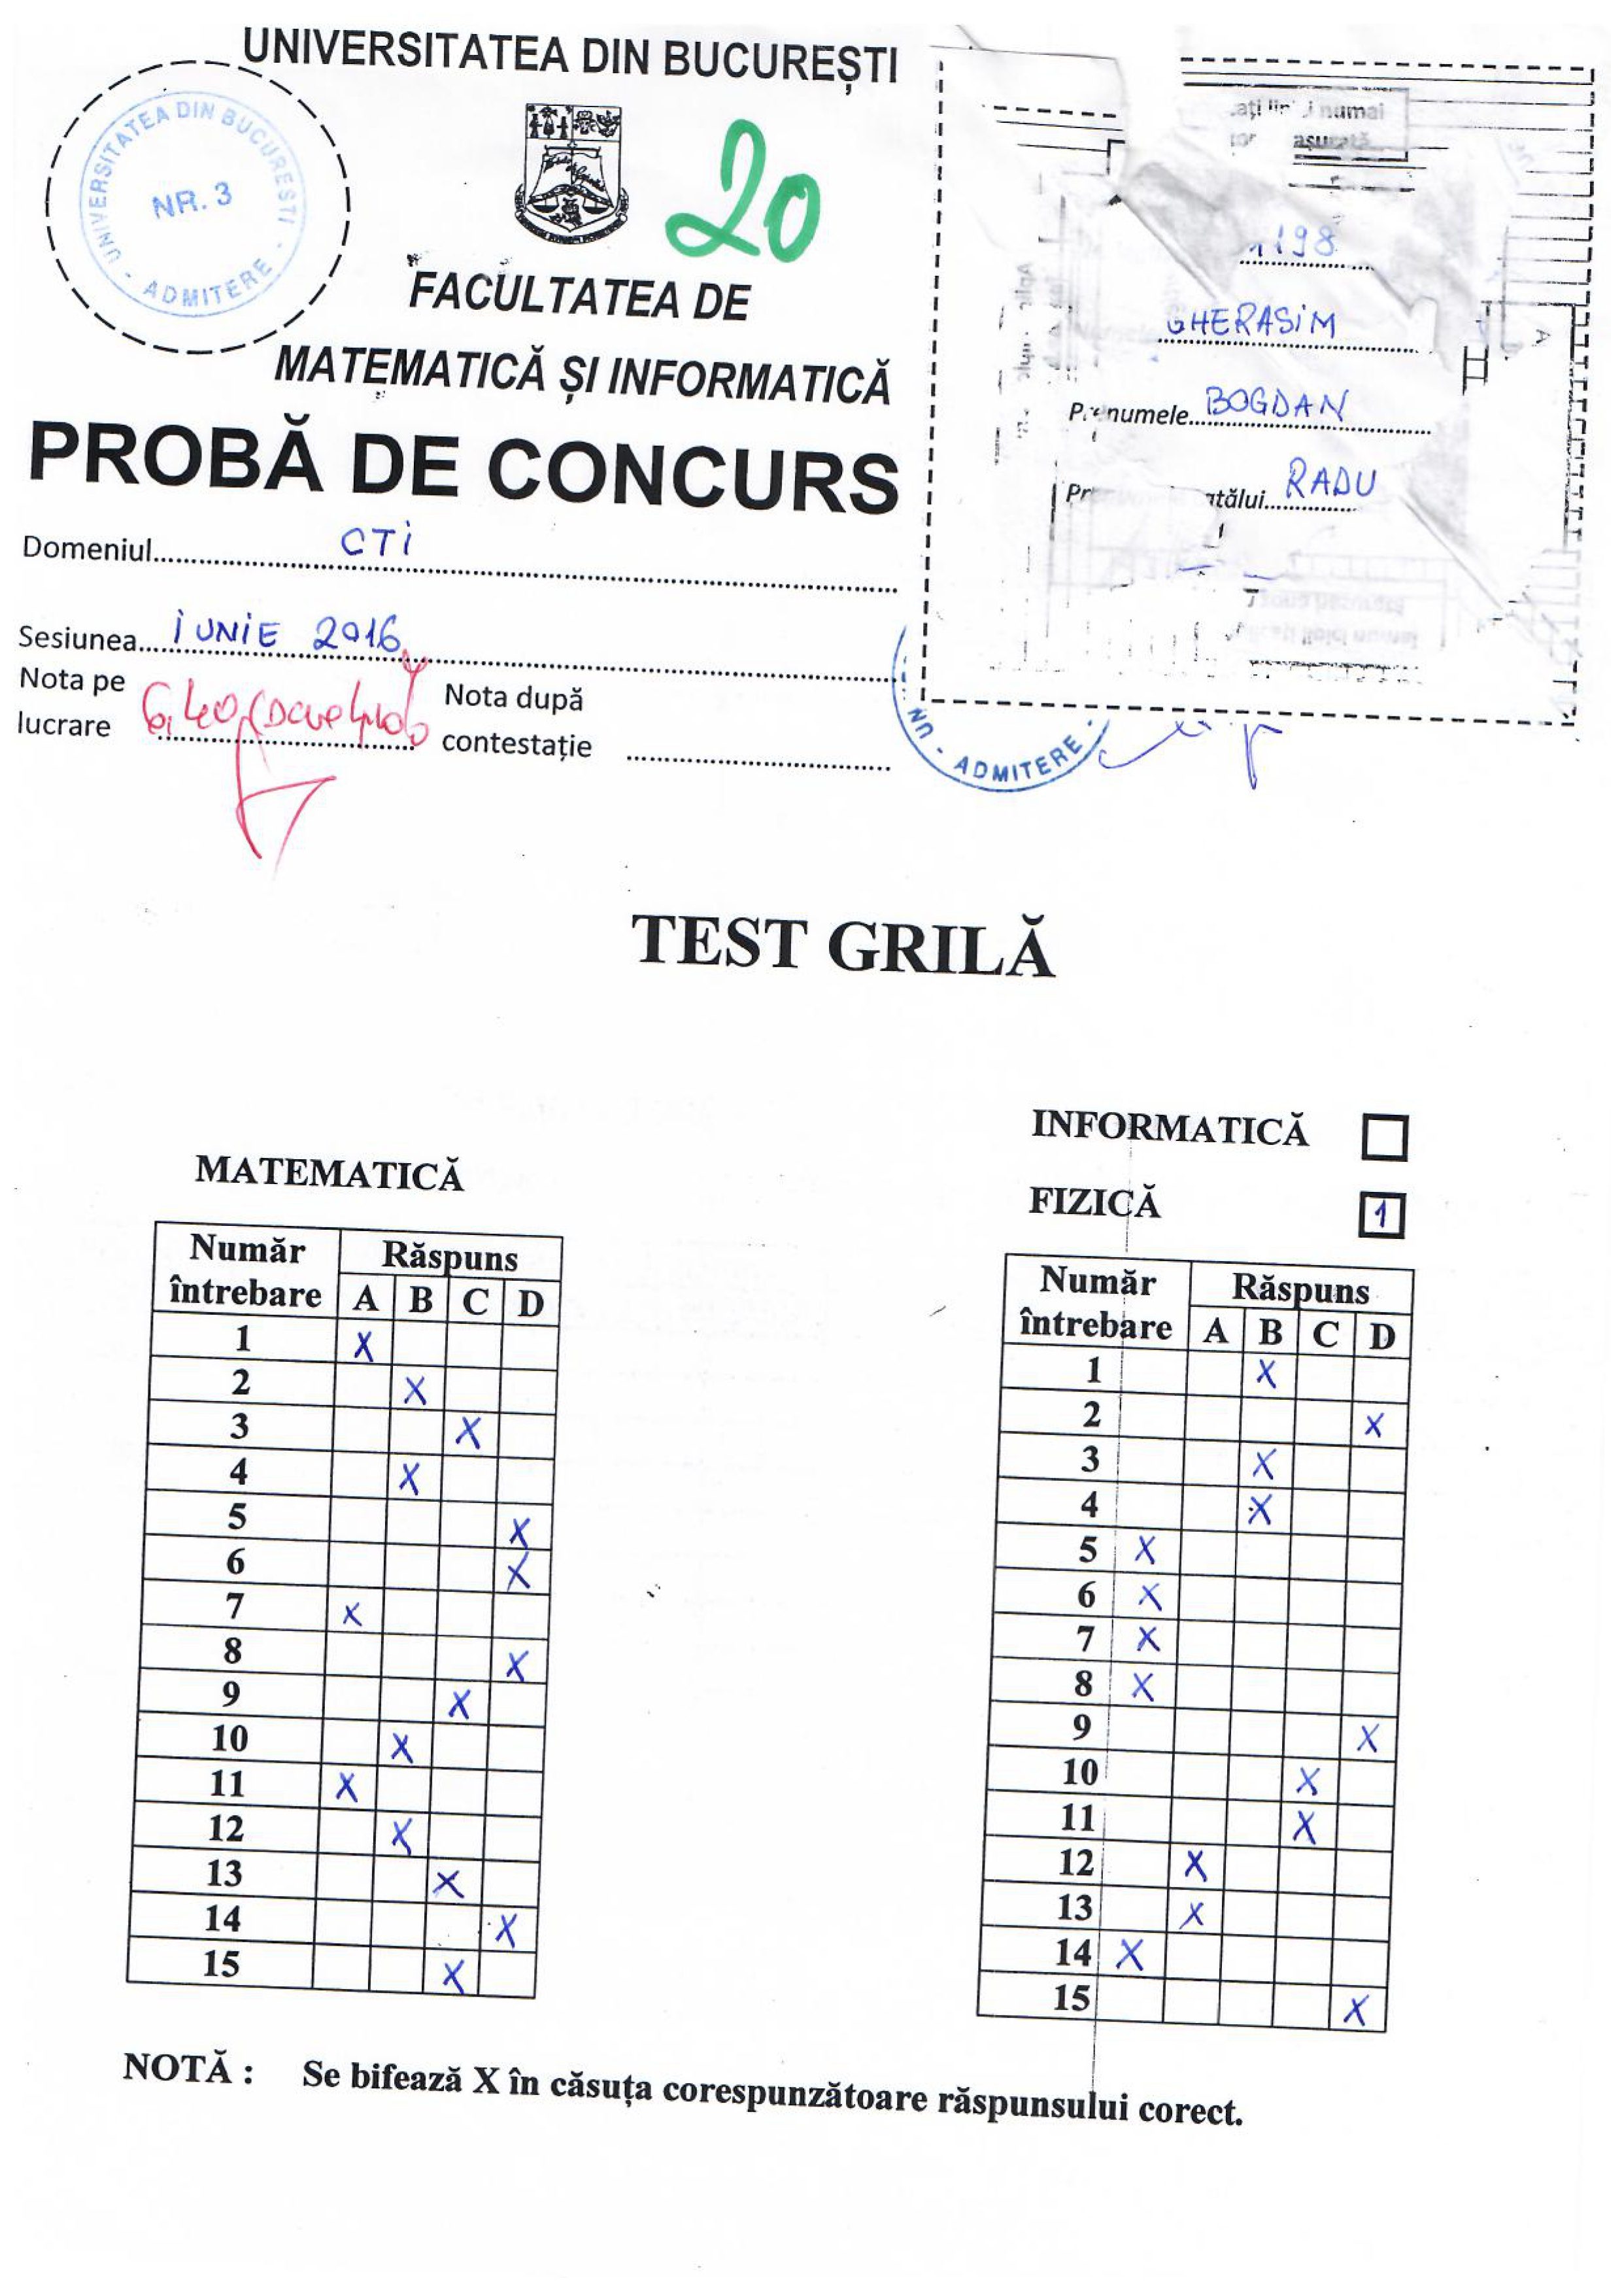 UNIVERSITATEA DIN BUCUREȘTI
UNIVERSITATEA DIN BUCUREȘTI - ADMITERE -
NR. 3
20
FACULTATEA DE
MATEMATICĂ ȘI INFORMATICĂ
PROBĂ DE CONCURS
Domeniul CTI
Sesiunea IUNIE 2016
Nota pe lucrare 6,40
Nota după contestație
numai
1198
GHERASIM
Prenumele BOGDAN
RADU
UN - ADMITERE -
TEST GRILĂ
MATEMATICĂ
Număr întrebare Răspuns
A B C D
1 X
2 X
3 X
4 X
5 X
6 X
7 X
8 X
9 X
10 X
11 X
12 X
13 X
14 X
15 X
INFORMATICĂ
FIZICĂ 1
Număr întrebare Răspuns
A B C D
1 X
2 X
3 X
4 X
5 X
6 X
7 X
8 X
9 X
10 X
11 X
12 X
13 X
14 X
15 X
NOTĂ : Se bifează X în căsuța corespunzătoare răspunsului corect.